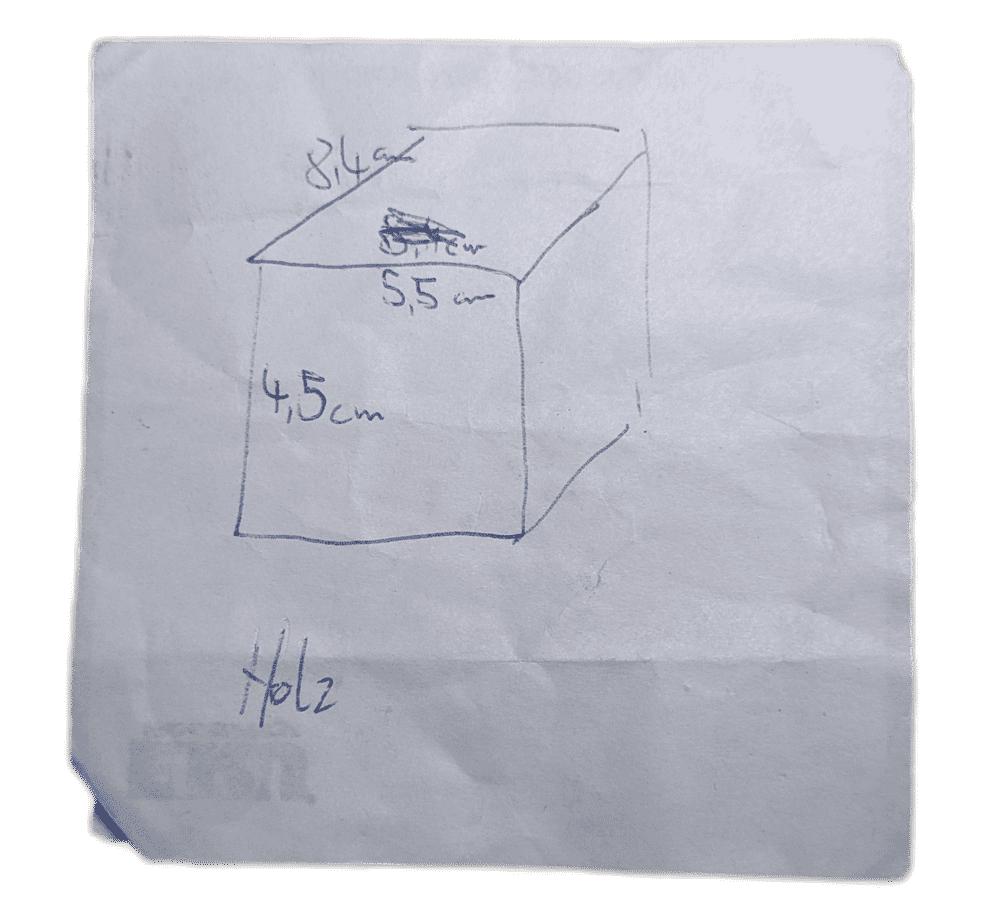 8,4 cm
5,5 cm
4,5cm
Holz